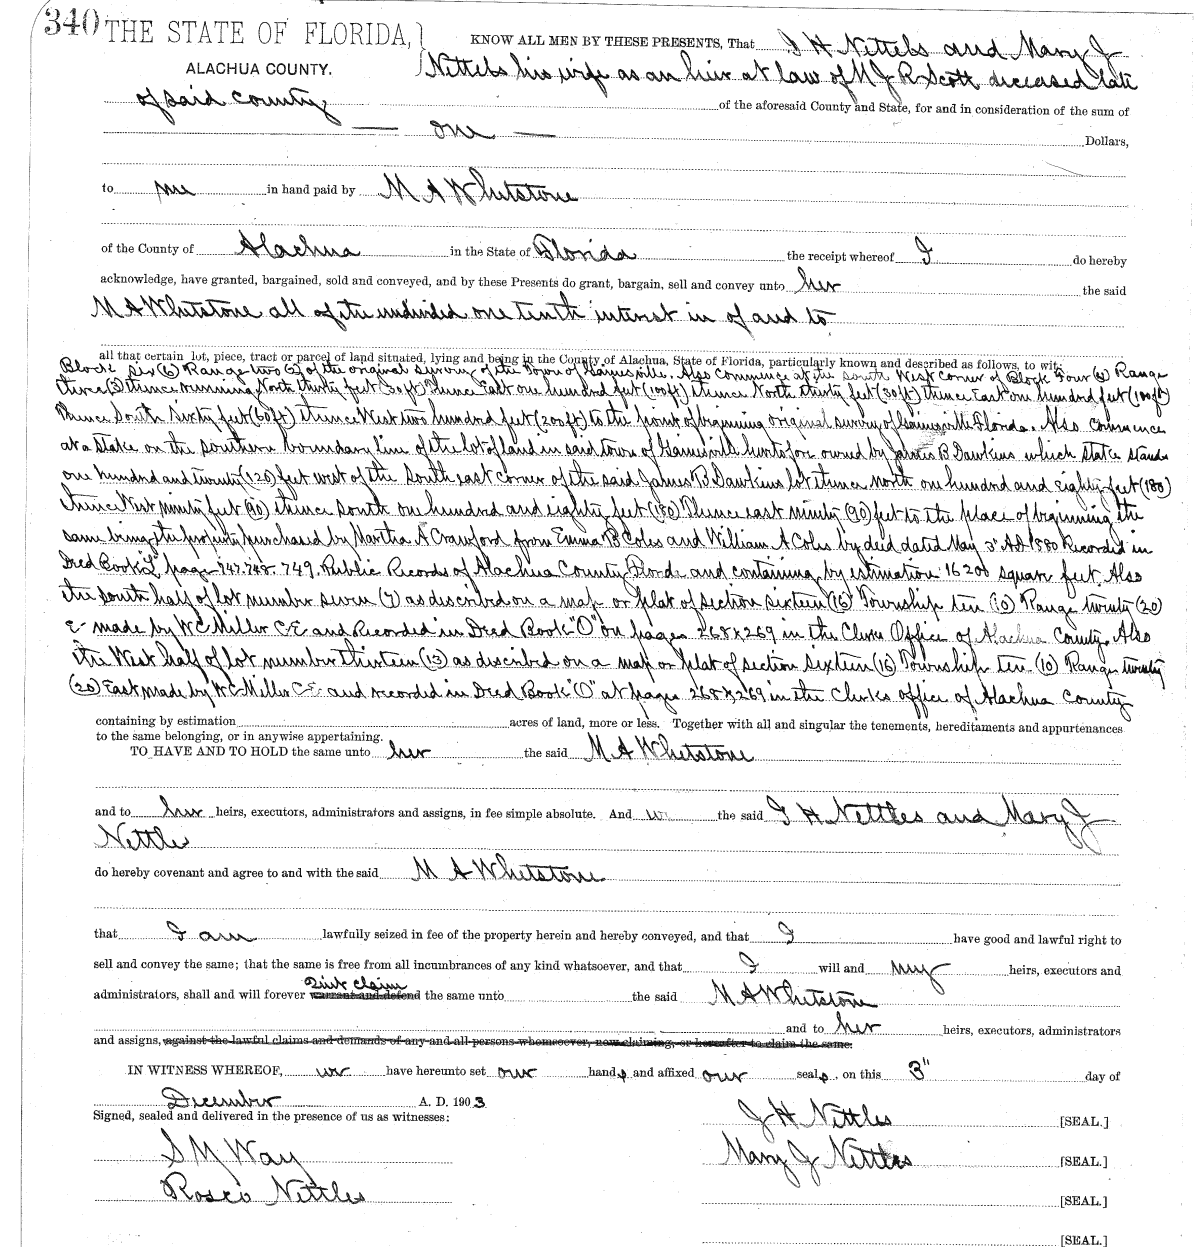 340 THE STATE OF FLORIDA,
KNOW ALL MEN BY THESE PRESENTS, That J H Nettles and Mary J
ALACHUA COUNTY.
Nettels his wife as an heir at law of M J R Scott deceased late
of said county
of the aforesaid County and State, for and in consideration of the sum of
— one — Dollars,
to me in hand paid by M A Whetstone
of the County of Alachua in the State of Florida the receipt whereof I do hereby
acknowledge, have granted, bargained, sold and conveyed, and by these Presents do grant, bargain, sell and convey unto her the said
M A Whetstone all of the undivided one tenth interest in of and to
all that certain lot, piece, tract or parcel of land situated, lying and being in the County of Alachua, State of Florida, particularly known and described as follows, to wit:
Block six (6) Range two (2) of the original survey of the Town of Gainesville. Also Commence at the South West corner of Block Four (4) Range
three (3) thence running North thirty feet (30ft) Thence East one hundred feet (100ft) thence North thirty feet (30ft) thence East one hundred feet (100ft)
Thence South Sixty feet (60ft) thence West two hundred feet (200ft) to the point of beginning original survey of Gainesville Florida. Also commence
at a stake on the southern boundary line of the lot of land in said town of Gainesville heretofore owned by James B Dawkins which stake stands
one hundred and twenty (120) feet west of the South east corner of the said James B Dawkins lot thence north one hundred and eighty feet (180)
thence West ninety feet (90) thence south one hundred and eighty feet (180) Thence east ninety (90) feet to the place of beginning the
same being the property purchased by Martha A Crawford from Emma B Coles and William A Coles by deed dated May 3" A.D. 1880 Recorded in
Deed Book page 747.748.749. Public Records of Alachua County Florida and containing by estimation 16200 square feet. Also
the South half of lot number seven (7) as described on a map or plat of section sixteen (16) Township ten (10) Range twenty (20)
E- made by W C Miller C.E and Recorded in Deed Book "O" on pages 268 & 269 in the Clerks Office of Alachua County. Also
the West half of lot number thirteen (13) as described on a map or plat of section sixteen (16) Township ten (10) Range twenty
(20) East made by W C Miller C.E. and recorded in Deed Book "O" at pages 268 & 269 in the Clerks office of Alachua County
containing by estimation acres of land, more or less. Together with all and singular the tenements, hereditaments and appurtenances
to the same belonging, or in anywise appertaining.
TO HAVE AND TO HOLD the same unto her the said M A Whetstone
and to her heirs, executors, administrators and assigns, in fee simple absolute. And we the said J H Nettles and Mary J
Nettles
do hereby covenant and agree to and with the said M A Whetstone
that I am lawfully seized in fee of the property herein and hereby conveyed, and that I have good and lawful right to
sell and convey the same; that the same is free from all incumbrances of any kind whatsoever, and that I will and my heirs, executors and
Quit claim
administrators, shall and will forever warrant and defend the same unto the said M A Whetstone
and to her heirs, executors, administrators
and assigns, against the lawful claims and demands of any and all persons whomsoever, now claiming, or hereafter to claim the same.
IN WITNESS WHEREOF, we have hereunto set our hands and affixed our seals, on this 3" day of
December A. D. 1903
Signed, sealed and delivered in the presence of us as witnesses:
J H Nettles [SEAL.]
S M Way
Mary J Nettles [SEAL.]
Rosco Nettles
[SEAL.]
[SEAL.]